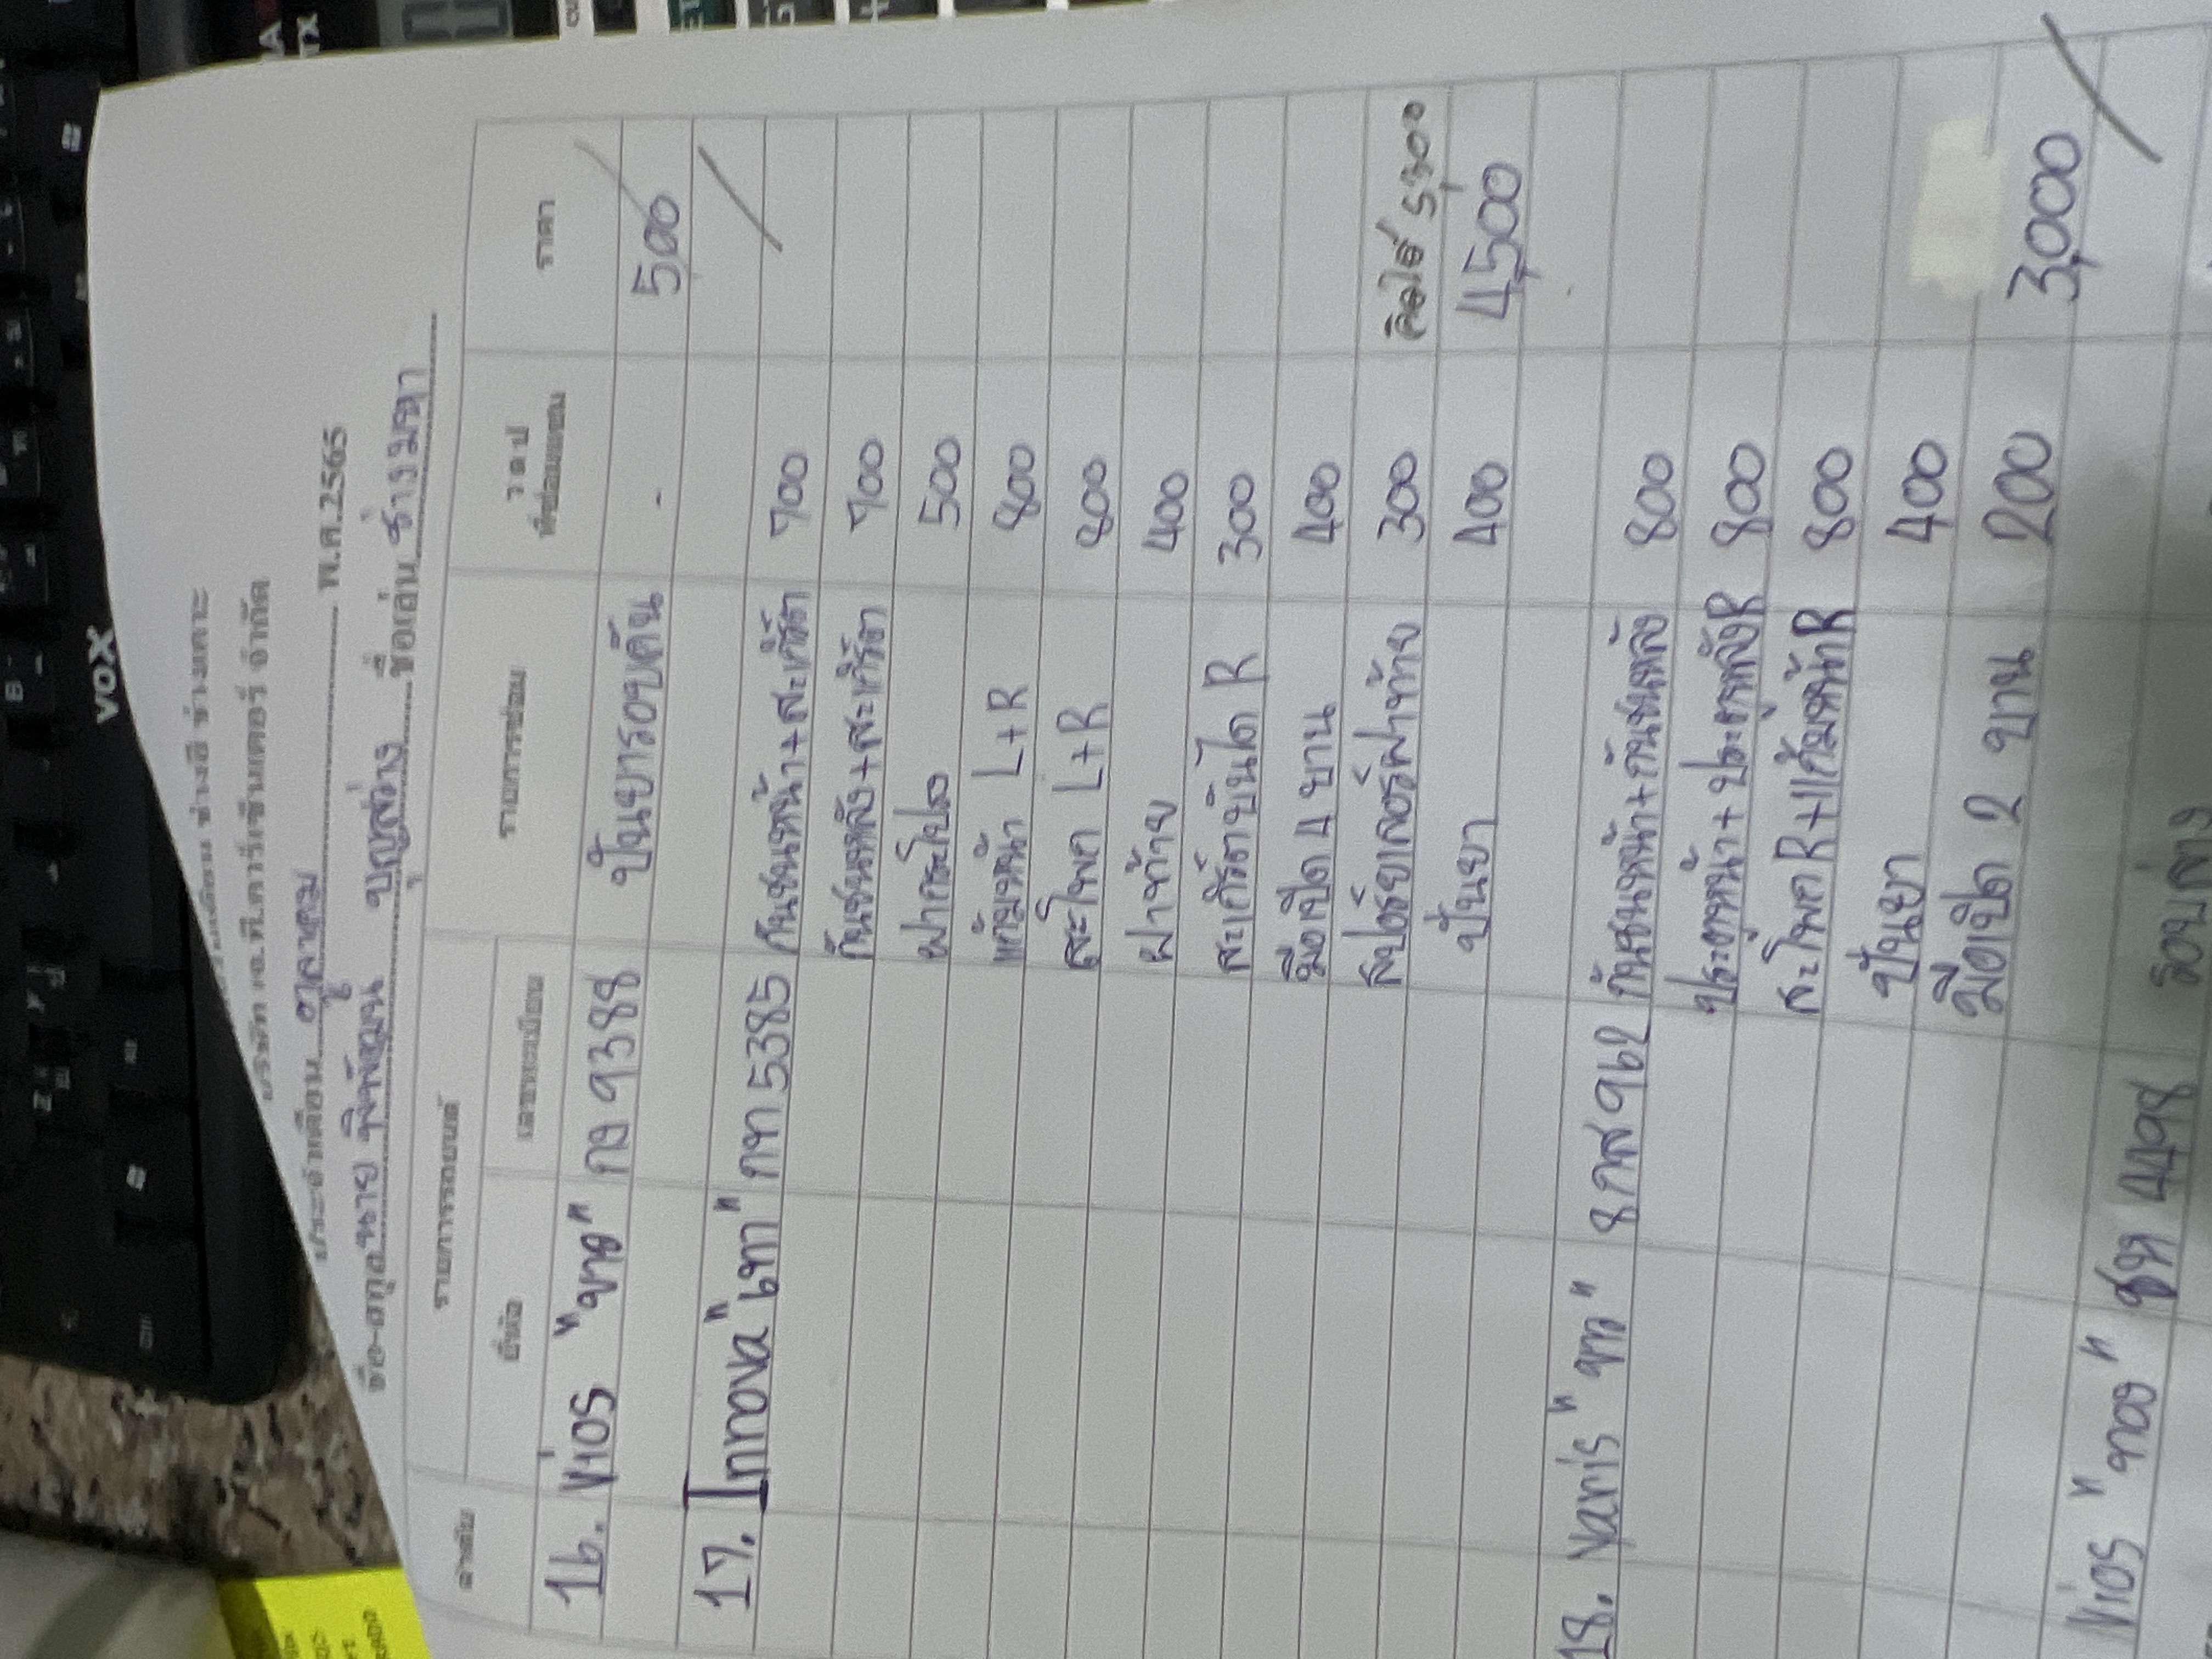 ช่างสี ช่างเคาะ
บริษัท เอ.ที.คาร์เซ็นเตอร์ จำกัด
ประจำเดือน ตุลาคม พ.ศ.2565
ชื่อ-สกุล นาย บุญสว่าง ชื่อเล่น ช่าง
ลำดับ รายการรถยนต์ รายการซ่อม ว ด ป ราคา
ยี่ห้อ เลขทะเบียน
16. Vios กง 9388 ปั้นยารอบคัน - 500
17. Innova "เทา" กท 5385 กันชนหน้า+สะเกิ๊ต 700
กันชนหลัง+สะเกิ๊ต 700
ฝากระโปรง 500
แก้มหน้า L+R 800
สะโพก L+R 800
ฝาท้าย 400
สะเกิ๊ตบันได R 300
มือเปิด 4 บาน 400
สปอร์ยเลอร์ฝาท้าย 300
ปั้นยา 400 4,500
18. Yaris 8กส 962 กันชนหน้า+กันชนหลัง 800
ประตูหน้า+ประตูหลังR 800
สะโพกR+แก้มหน้าR 800
ปั้นยา 400
มือเปิด 2 บาน 200 3,000
Vios 4498
VOX